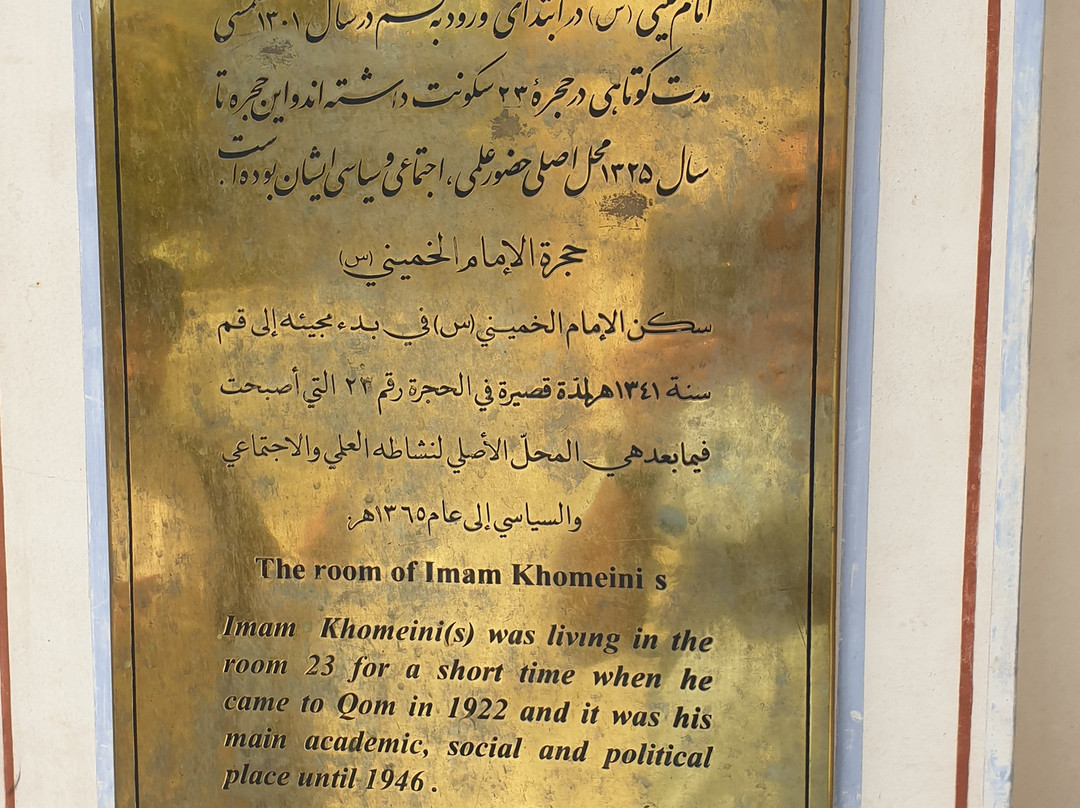 امام خمینی (س) در ابتدای ورود به قم در سال ۱۳۰۱ شمسی
مدت کوتاهی در حجرهٔ ۲۳ سکونت داشته اند و این حجره تا
سال ۱۳۲۵ محل اصلی حضور علمی، اجتماعی و سیاسی ایشان بوده است.
حجرة الإمام الخميني (س)
سكن الإمام الخميني (س) في بدء مجيئه إلى قم
سنة ١٣٤١هـ لمدّة قصيرة في الحجرة رقم ٢٣ التي أصبحت
فيما بعد هي المحلّ الأصلي لنشاطه العلمي والاجتماعي
والسياسي إلى عام ١٣٦٥هـ.
The room of Imam Khomeini s
Imam Khomeini(s) was living in the
room 23 for a short time when he
came to Qom in 1922 and it was his
main academic, social and political
place until 1946 .